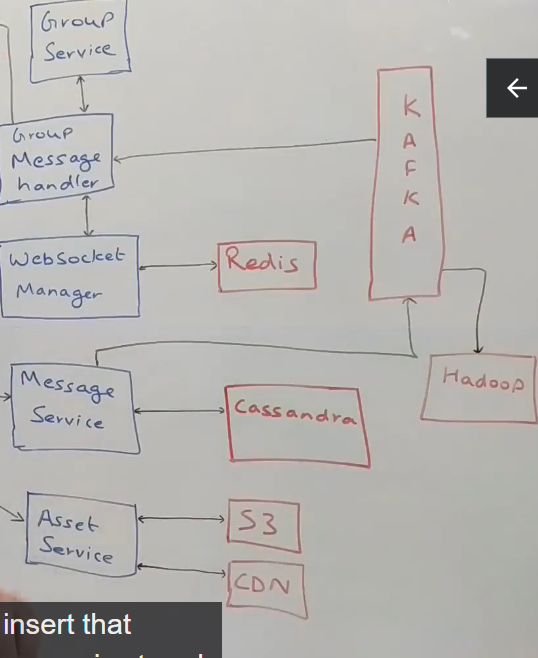 Group
Service
Group
Message
handler
K
A
F
K
A
WebSocket
Manager
Redis
Message
Service
Cassandra
Hadoop
Asset
Service
S3
CDN
insert that